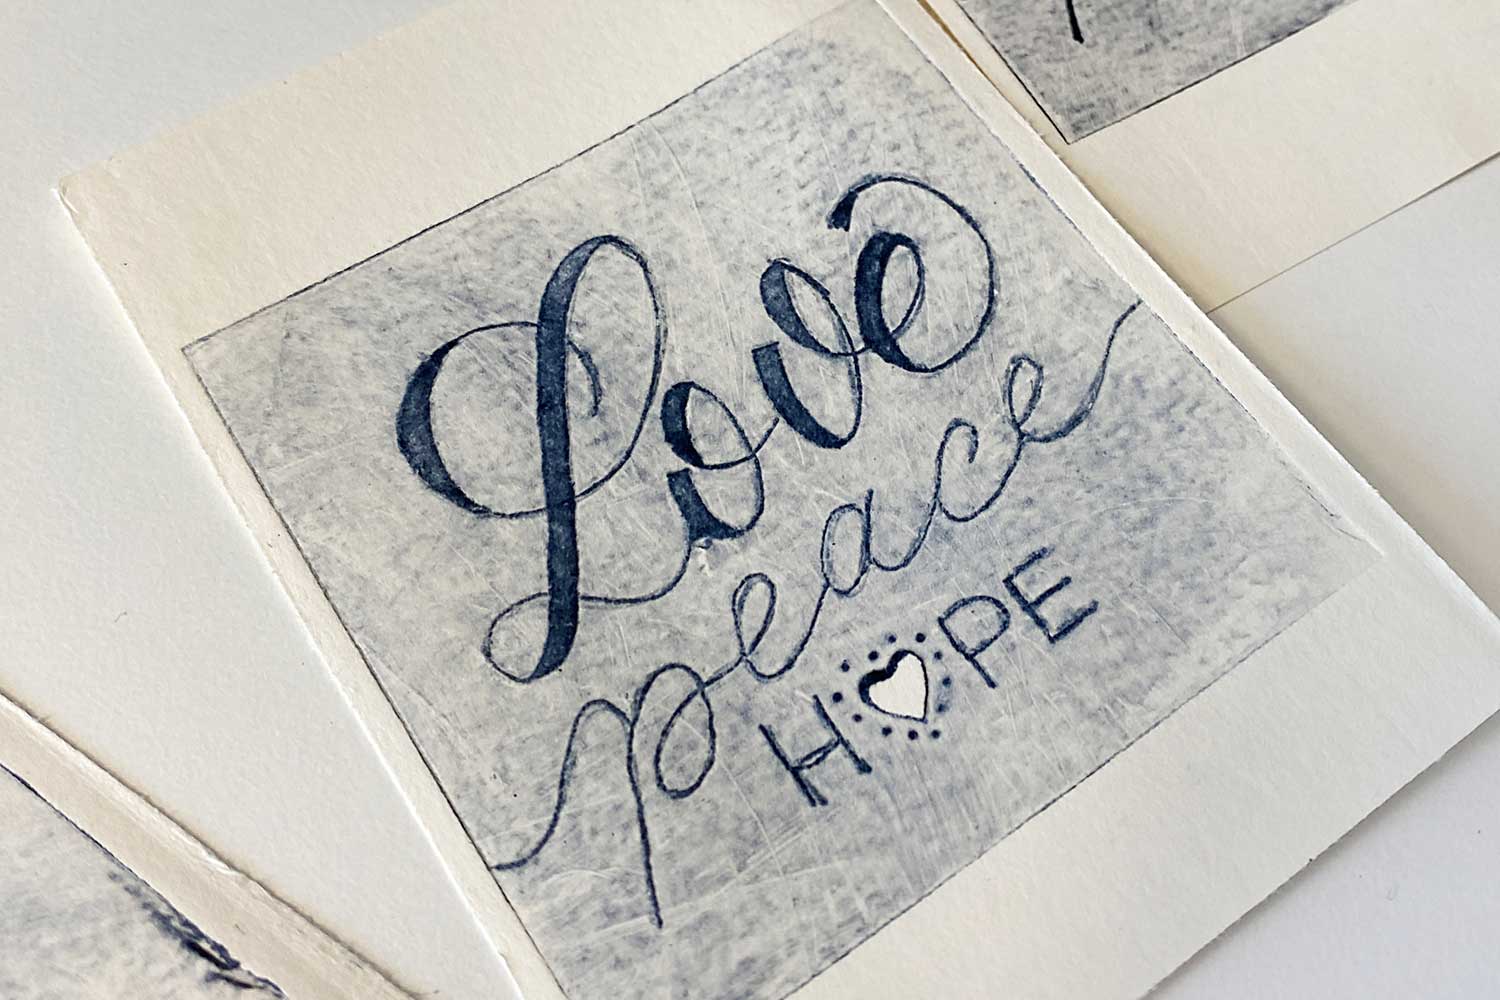 Love
peace
HOPE